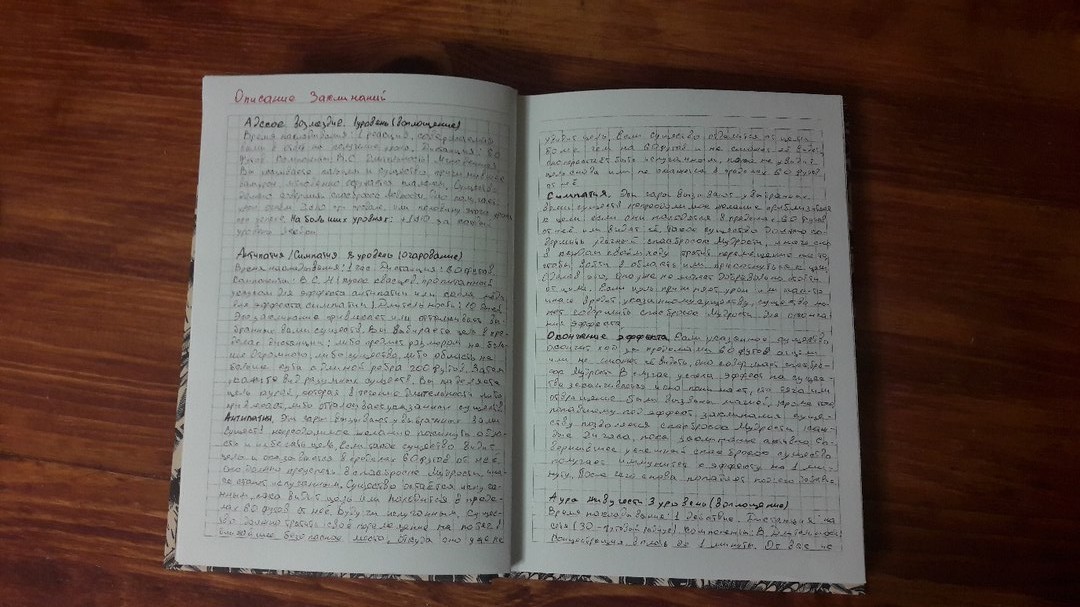 Описание Заклинаний
Адское возмездие. 1 уровень (воплощение)
Время накладывания: 1 реакция, совершаемая
вами в ответ на получение урона. Дистанция: 60
футов. Компоненты: В, С. Мгновенная
Вы указываете пальцем, и существо, причинившее
окутывается пламенем. Существо
должно совершить спасбросок Ловкости,
огнём 2d10 при провале или половину этого урона
при успехе. На больших уровнях: +1d10 за каждый
уровень ячейки.
Антипатия/Симпатия 8 уровень (очарование)
Время накладывания: 1 час. Дистанция: 60 футов.
Компоненты: В, С, М (кусок квасцов, пропитанный
уксусом для эффекта антипатии или капля мёда
для эффекта симпатии) Длительность: 10 дней
Это заклинание привлекает или отталкивает вы-
бранных вами существ. Вы выбираете цель в пре-
делах дистанции: либо предмет размером не боль-
ше огромного, либо существо, либо область не
больше куба с длиной ребра 200 футов. Затем
укажите вид разумных существ. Вы наделяете
цель аурой, которая в течение длительности либо
привлекает, либо отталкивает указанных существ.
Антипатия. Эти чары вызывают у выбранных вами
существ непреодолимое желание покинуть облас-
ть и избегать цель. Если такое существо видит
цель и оказывается в пределах 60 футов от неё,
оно должно преуспеть в спасброске Мудрости, ина-
че станет испуганным. Существо остаётся испуган-
ным, пока видит цель или находится в преде-
лах 60 футов от неё. Будучи испуганным, сущес-
тво должно тратить своё перемещение на поиск
ближайшее безопасное место, откуда оно уже не
увидит цель. Если существо отдалится от цели
более чем на 60 футов и не сможет её видеть,
перестает быть испуганным, пока не увидит
цель снова или не окажется в пределах 60 футов
от неё.
Симпатия. Эти чары вызывают у выбранных
вами существ непреодолимое желание приблизиться
к цели, если они находятся в пределах 60 футов
от неё или видят её. Такое существо должно со-
вершить успешный спасбросок Мудрости, иначе оно
в каждом своём ходу тратит перемещение на то,
чтобы войти в область или прикоснуться к цели.
Сделав это, оно уже не может добровольно отойти
от цели. Если цель причиняет урон или как-то
иначе вредит указанному существу, существо мо-
жет совершить спасбросок Мудрости для оконча-
ния эффекта.
Окончание эффекта. Если указанное существо
окончит ход за пределами 60 футов от цели
или не сможет её видеть, оно совершает спасбро-
сок Мудрости. В случае успеха эффект на сущес-
тве заканчивается и оно понимает, что тяга или
отвращение были вызваны магией. Кроме того,
попавшему под эффект заклинания сущес-
тву позволяется спасбросок Мудрости каж-
дые 24 часа, пока заклинание активно. Со-
вершившее успешный спасбросок существо
получает иммунитет к эффекту на 1 ми-
нуту. После чего снова попадает под его действие.
Аура живучести 3 уровень (воплощение)
Время накладывания: 1 действие. Дистанция: на
себя (30-футовый радиус). Компоненты: В. Длительность:
Концентрация вплоть до 1 минуты. От вас ис